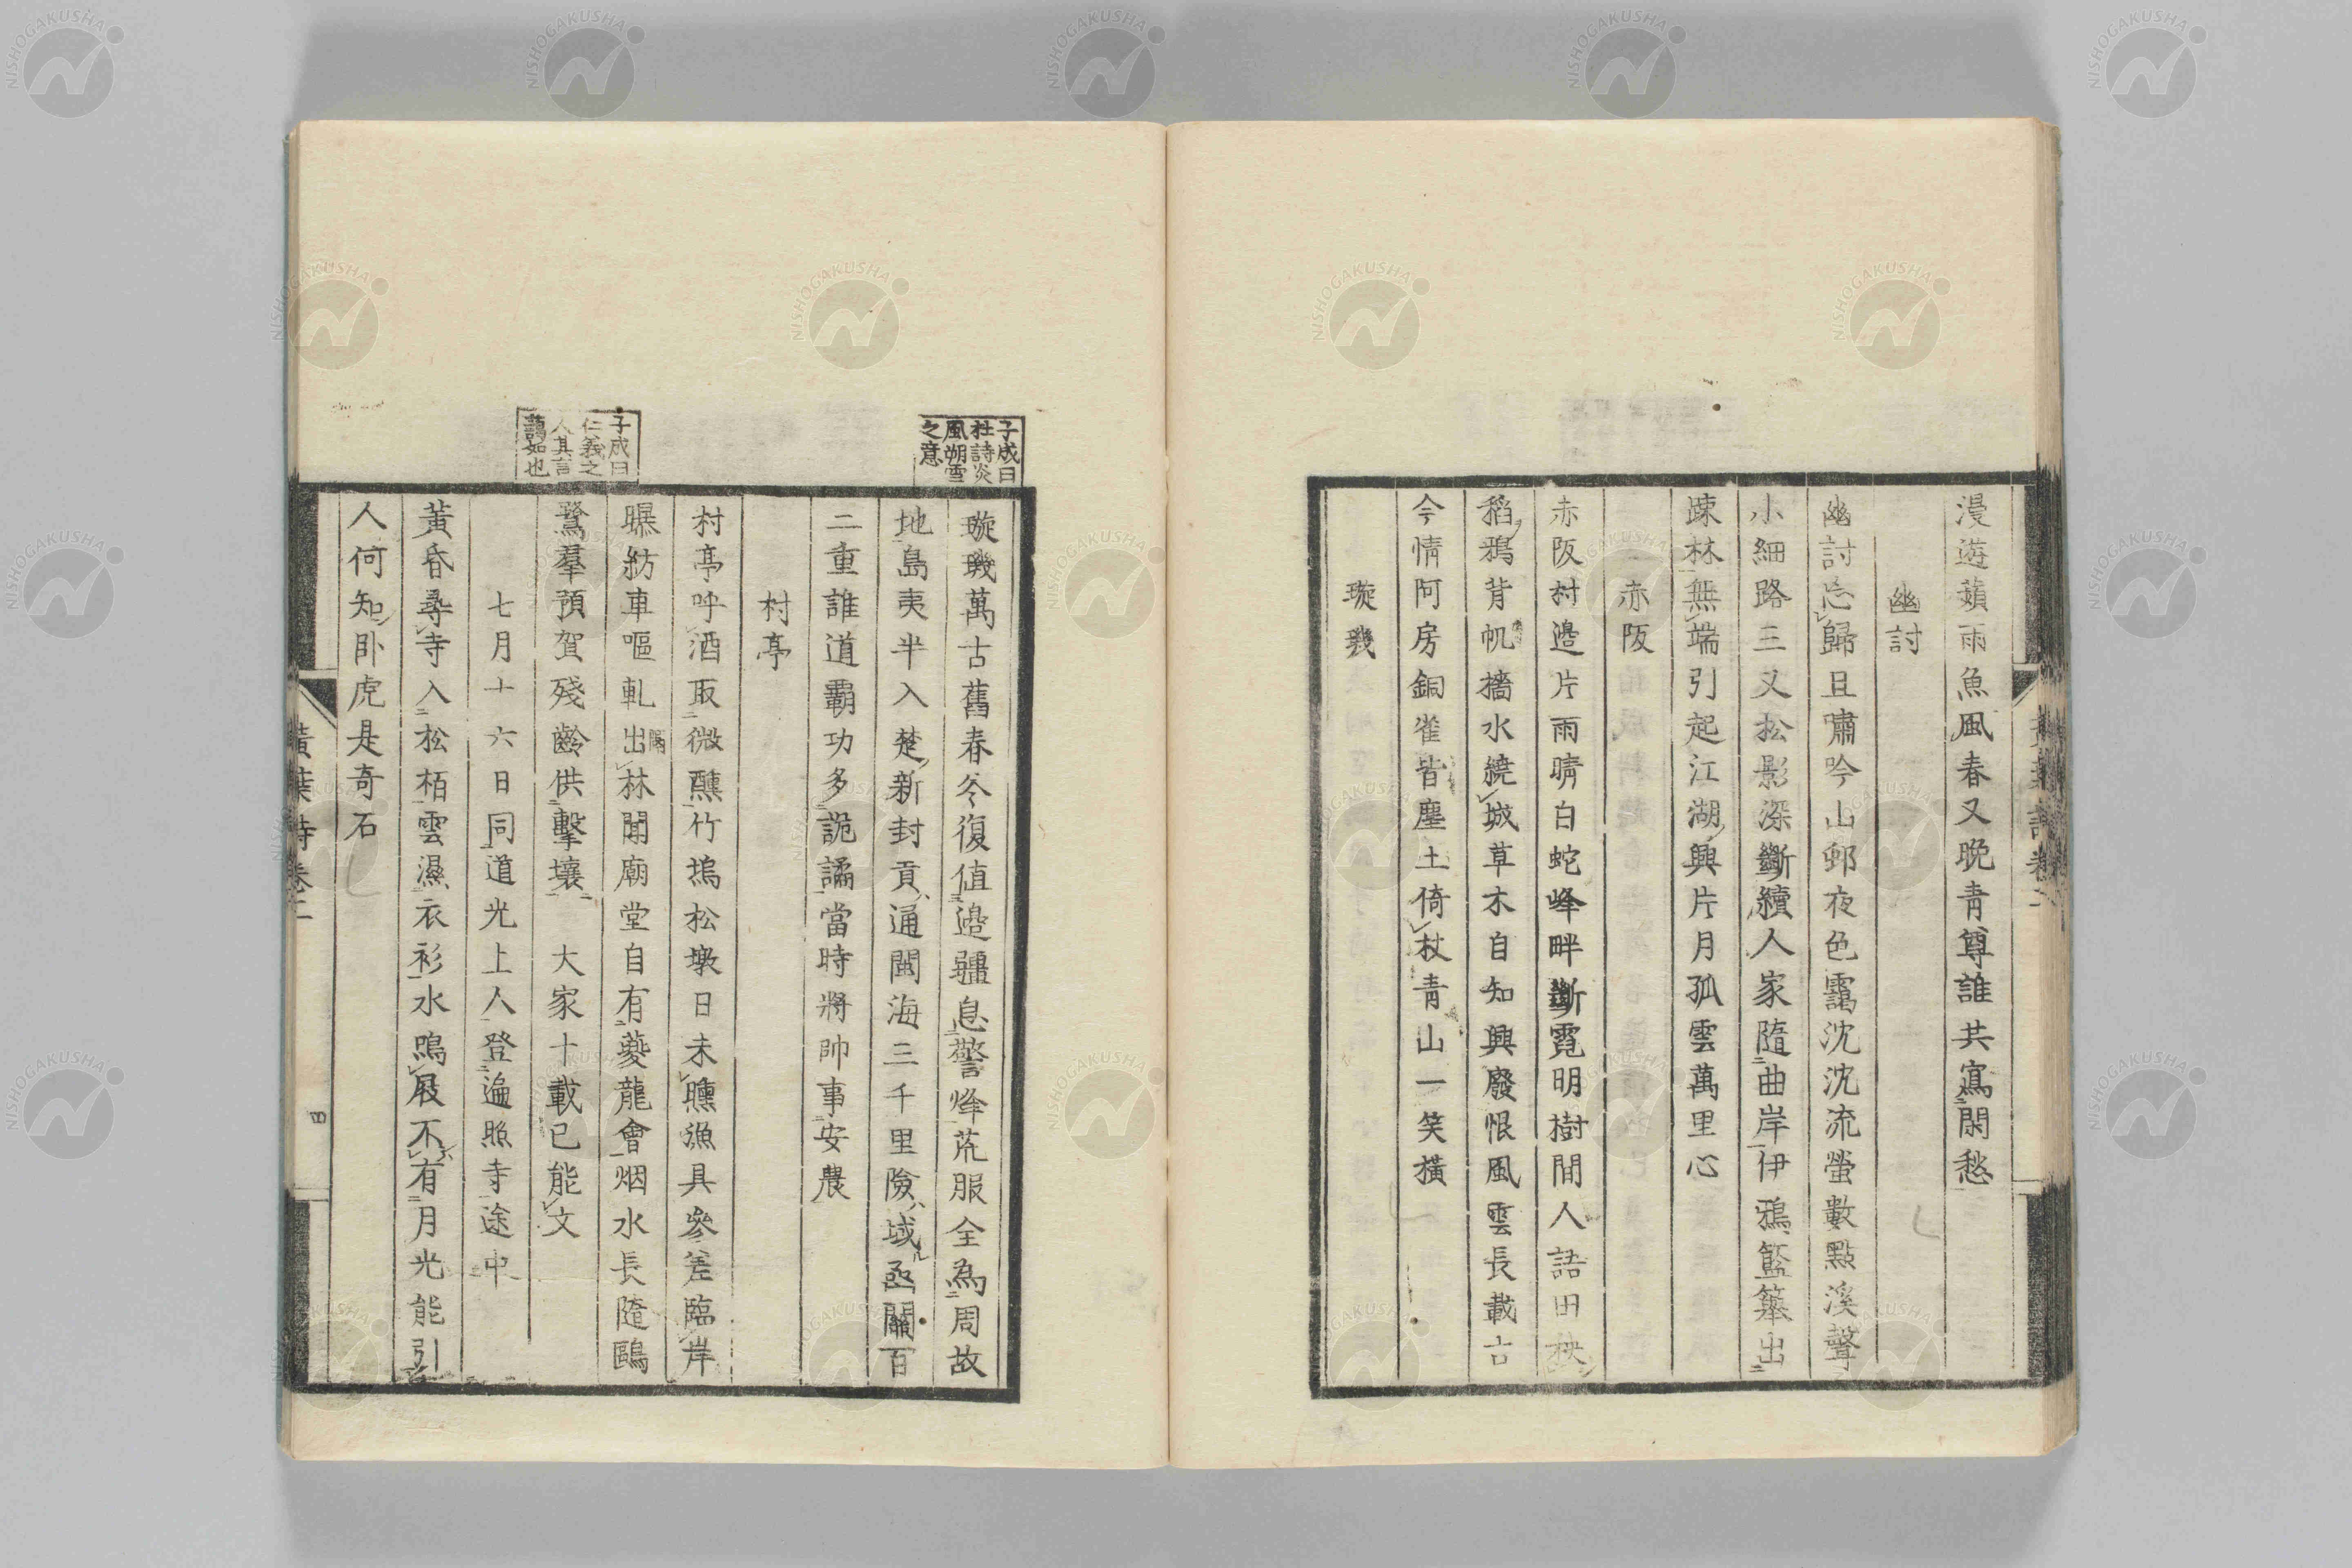 漫遊蘋雨魚風春又晚青尊誰共寫閑愁
幽討
幽討忘歸且嘯吟山郵夜色靄沈沈流螢數點溪聲
小細路三叉松影深斷續人家隨曲岸伊鴉籃輿出
疎林無端引起江湖興片月孤雲萬里心
赤阪
赤阪村邊片雨晴白蛇峰畔斷霓明樹間人語田秧
稻鴉背帆檣水繞城草木自知興廢恨風雲長載古
今情阿房銅雀皆塵土倚杖青山一笑橫
璇璣
黃葉詩卷二
子成曰
杜詩炎
風朔雪
之意
璇璣萬古舊春冬復值邊疆息警烽荒服全為周故
地島夷半入楚新封貢通閩海三千里險域函關百
二重誰道霸功多詭譎當時將帥事安農
村亭
村亭呼酒取微醺竹塢松墩日未曛漁具參差臨岸
曝紡車嘔軋出林聞廟堂自有夔龍會烟水長隨鷗
鷺羣預賀殘齡供擊壤 大家十載已能文
隔
子成曰
仁義之
人其言
藹如也
七月十六日同道光上人登遍照寺途中
黃昏尋寺入松栢雲濕衣衫水鳴屐不有月光能引
人何知臥虎是奇石
黃葉詩卷二
四
NISHOGAKUSHA